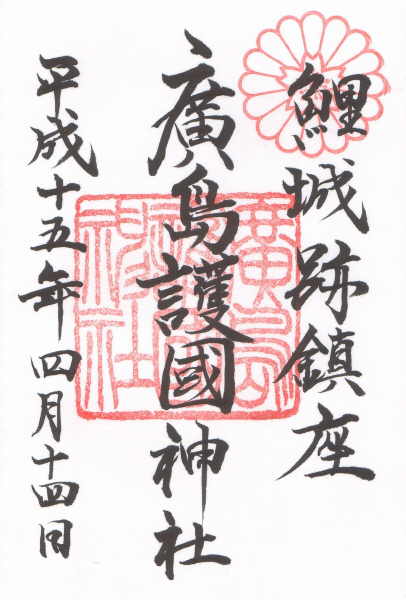 鯉城跡鎮座
廣島護國神社
平成十五年四月十四日
廣島護國神社